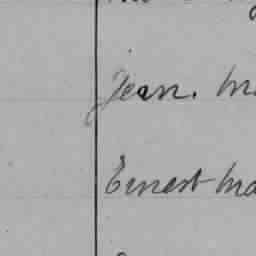 Jean. M
Ernest Ma